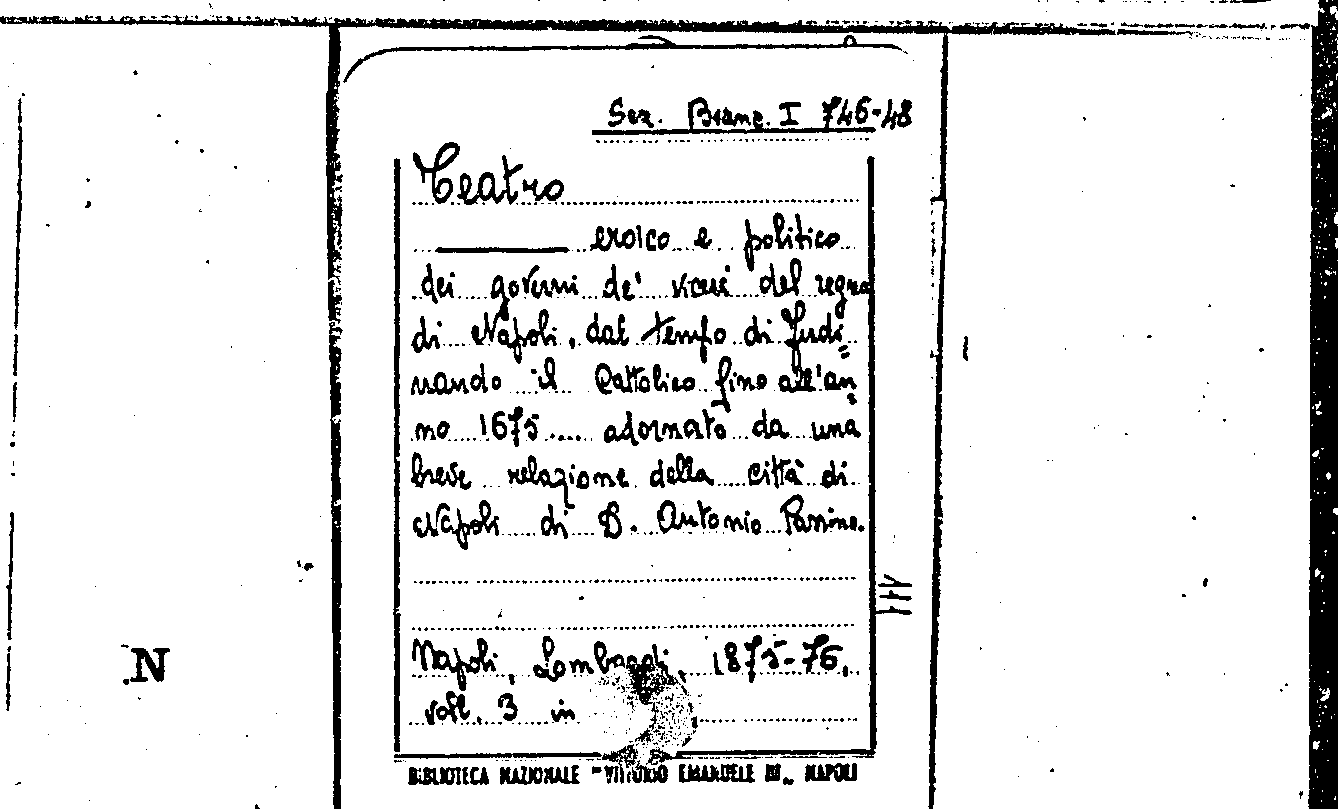 Sez. Branc. I 746-48
Teatro
eroico e politico
dei governi de' vicerè del regno
di Napoli, dal tempo di Ferdi=
nando il Cattolico fino all'an=
no 1675.... adornato da una
breve relazione della città di
Napoli di D. Antonio Parrino.
Napoli, Lombardi, 1875-76,
voll. 3 in
BIBLIOTECA NAZIONALE "VITTORIO EMANUELE III„ NAPOLI
N